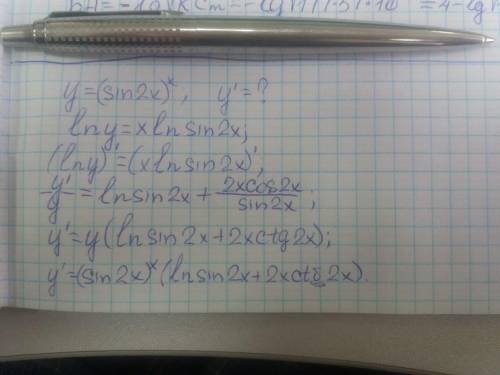 y=(sin2x)^x, y'=?
lny=xlnsin2x;
(lny)'=(xlnsin2x)';
y'/y=lnsin2x+2xcos2x/sin2x;
y'=y(lnsin2x+2xctg2x);
y'=(sin2x)^x(lnsin2x+2xctg2x).